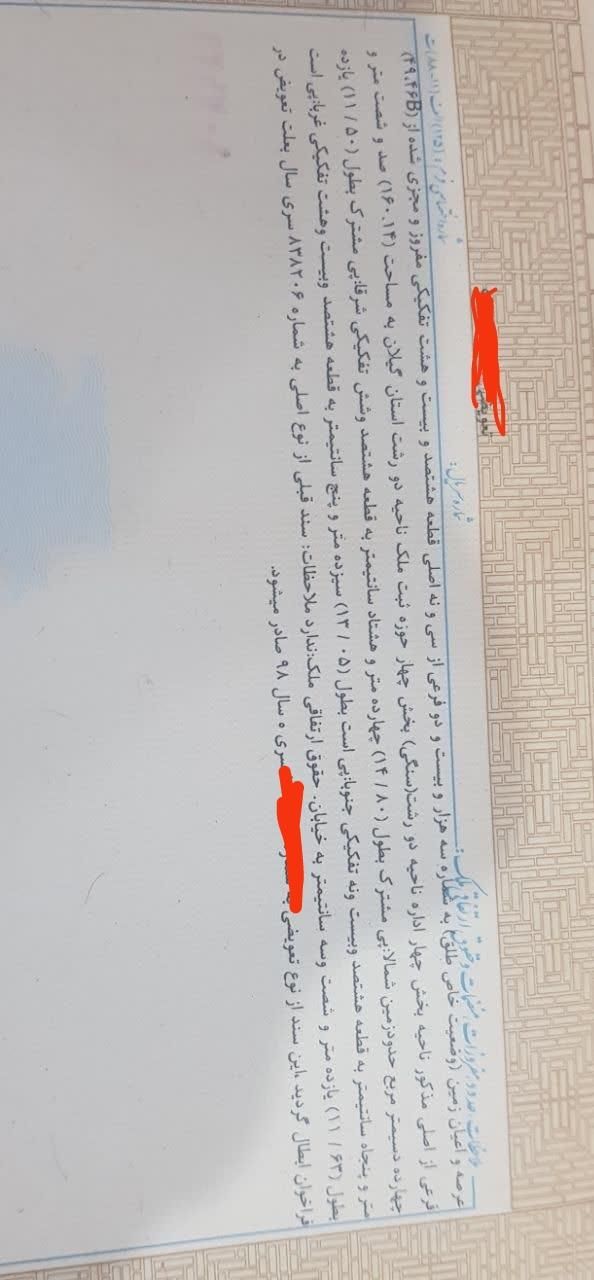 شماره سریال:
تعویضی
ملاحظات، حدود، مفروزات، منضمات و حقوق ارتفاقی ملک:
عرصه و اعیان زمین (وضعیت خاص طلق) به شماره سه هزار و بیست و دو فرعی از سی و نه اصلی قطعه هشتصد و بیست و هشت تفکیکی مفروز و مجزی شده از (۴۹.۴۶B)
فرعی از اصلی مذکور ناحیه بخش چهار اداره ناحیه دو رشت(سنگی) بخش چهار حوزه ثبت ملک ناحیه دو رشت استان گیلان به مساحت (۱۶۰.۱۴) صد و شصت متر و
چهارده دسیمتر مربع حدودزمین شمالا:پی مشترک بطول (۱۴/۸۰) چهارده متر و هشتاد سانتیمتر به قطعه هشتصد وشش تفکیکی شرقا:پی مشترک بطول (۱۱/۵۰) یازده
متر و پنجاه سانتیمتر به قطعه هشتصد وبیست ونه تفکیکی جنوبا:پی است بطول (۱۳/۰۵) سیزده متر و پنج سانتیمتر به قطعه هشتصد وبیست وهشت تفکیکی غربا:پی است
بطول (۱۱/۶۳) یازده متر و شصت وسه سانتیمتر به خیابان. حقوق ارتفاقی ملک:ندارد ملاحظات: سند قبلی از نوع اصلی به شماره ۸۳۸۲۰۶ سری سال بعلت تعویض در
فراخوان ابطال گردید ،این سند از نوع تعویضی به سری ه سال ۹۸ صادر میشود.